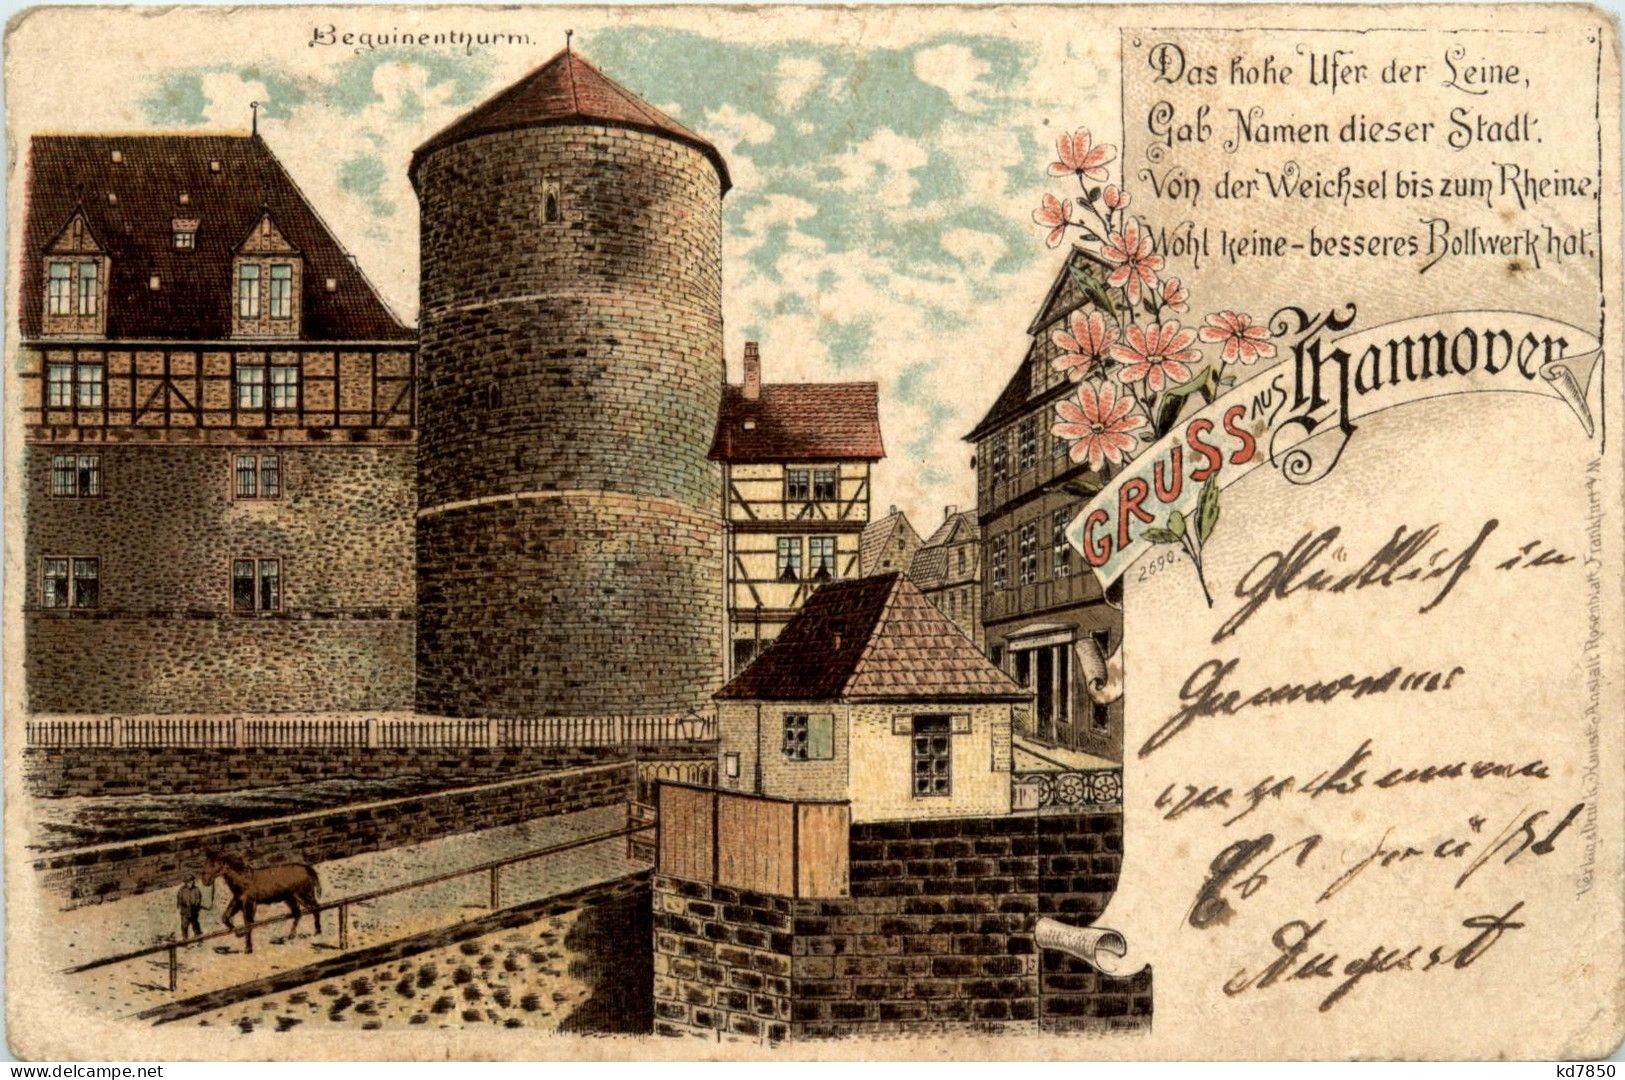 Bequinenthurm.
Das hohe Ufer der Leine,
Gab Namen dieser Stadt.
Von der Weichsel bis zum Rheine,
Wohl keine - besseres Bollwerk hat.
GRUSS AUS Hannover
2690.
Verlagsdruck Kunst-Anstalt Rosenblatt, Frankfurt a/M.
Glücklich in
Hannover
angekommen
Es grüßt
August
kd7850